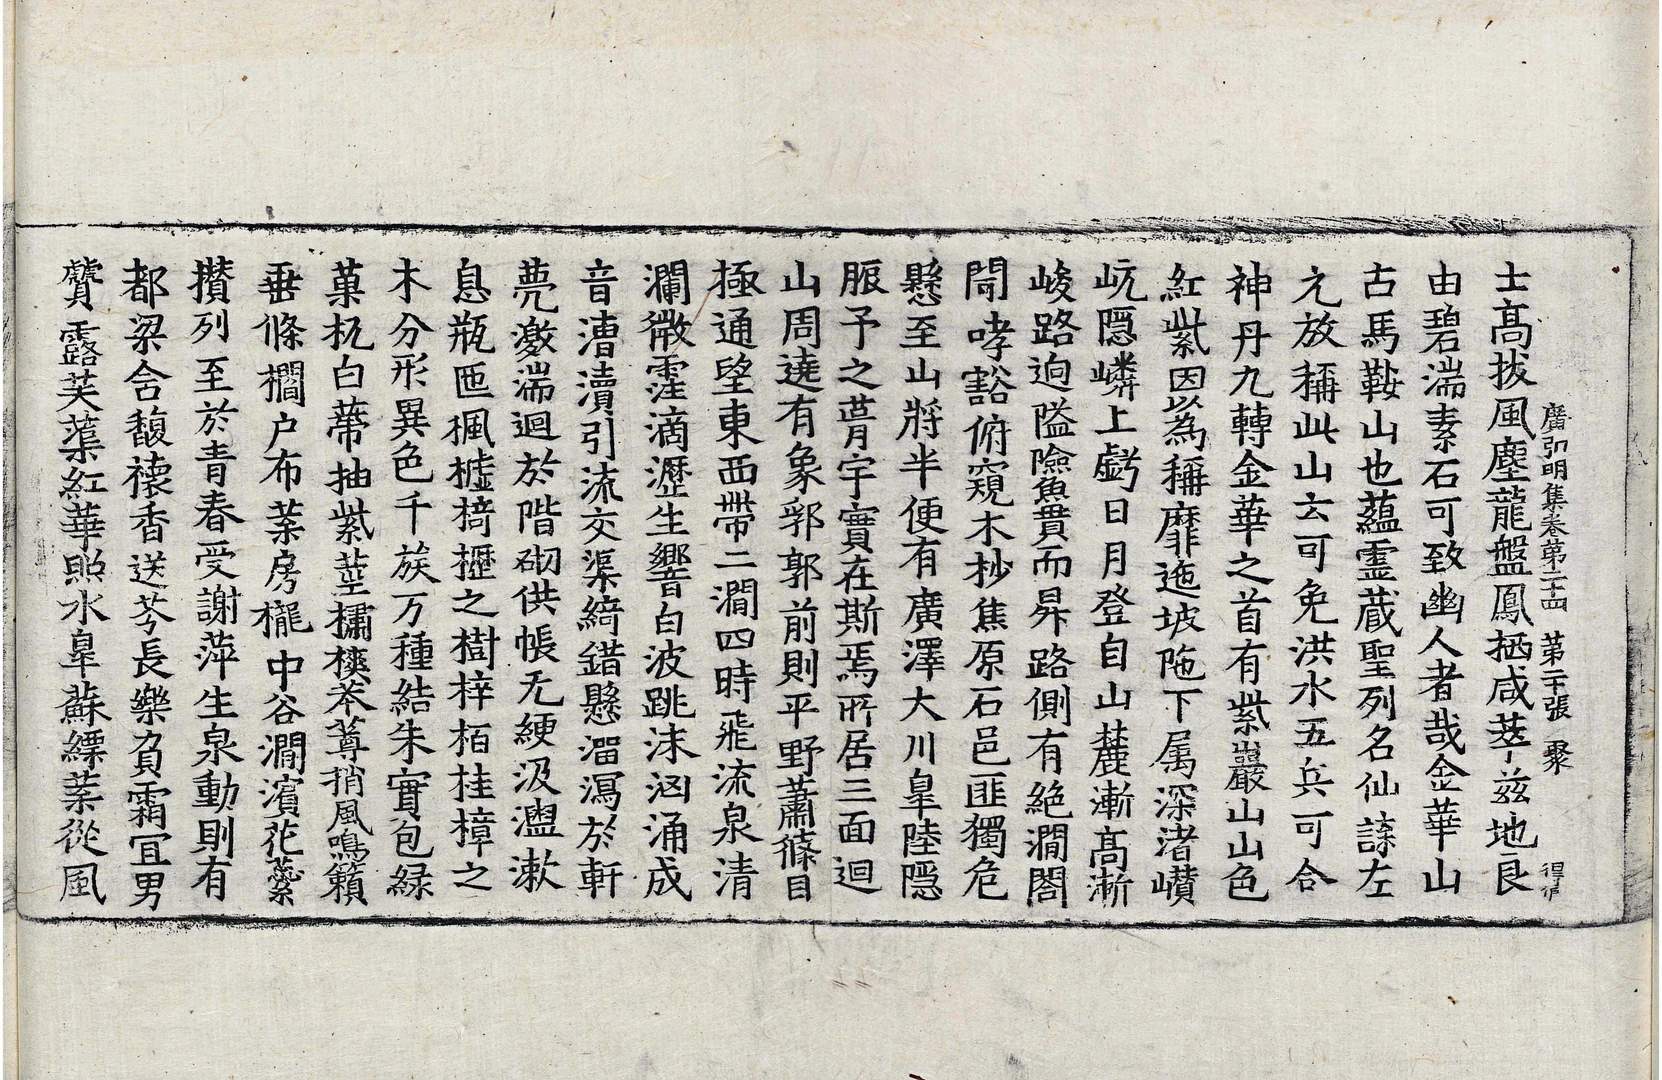 廣弘明集卷第二十四　第二十張　聚
士高拔風塵龍盤鳳栖咸萃茲地良
由碧湍素石可致幽人者哉金華山
古馬鞍山也蘊靈藏聖列名仙諜左
元放稱此山云可免洪水五兵可合
神丹九轉金華之首有紫巖山山色
紅紫因以為稱靡迤坡陁下属深渚巑
岏隱嶙上虧日月登自山麓漸高漸
峻路逈隘險魚貫而昇路側有絕澗閣
閜哮豁俯窺木杪焦原石邑匪獨危
懸至山將半便有廣澤大川皐陸隱
脤予之葺宇實在斯焉所居三面迴
山周遶有象郛郭前則平野蕭條目
極通望東西帶二澗四時飛流泉清
瀾微霔滴瀝生響白波跳沬汹涌成
音漕瀆引流交渠綺錯懸溜瀉於軒
甍激湍迴於階砌供帳无綆汲盥漱
息瓶匜楓櫨椅櫪之樹梓栢桂樟之
木分形異色千族万種結朱實包綠
菓杌白蔕抽紫莖橚槮苯䔿捎風鳴籟
垂條櫩户布葉房櫳中谷澗濱花蘂
攢列至於青春受謝萍生泉動則有
都梁含馥懷香送芬長樂負霜宜男
贙露芙蕖紅華照水皐蘇縹葉從風